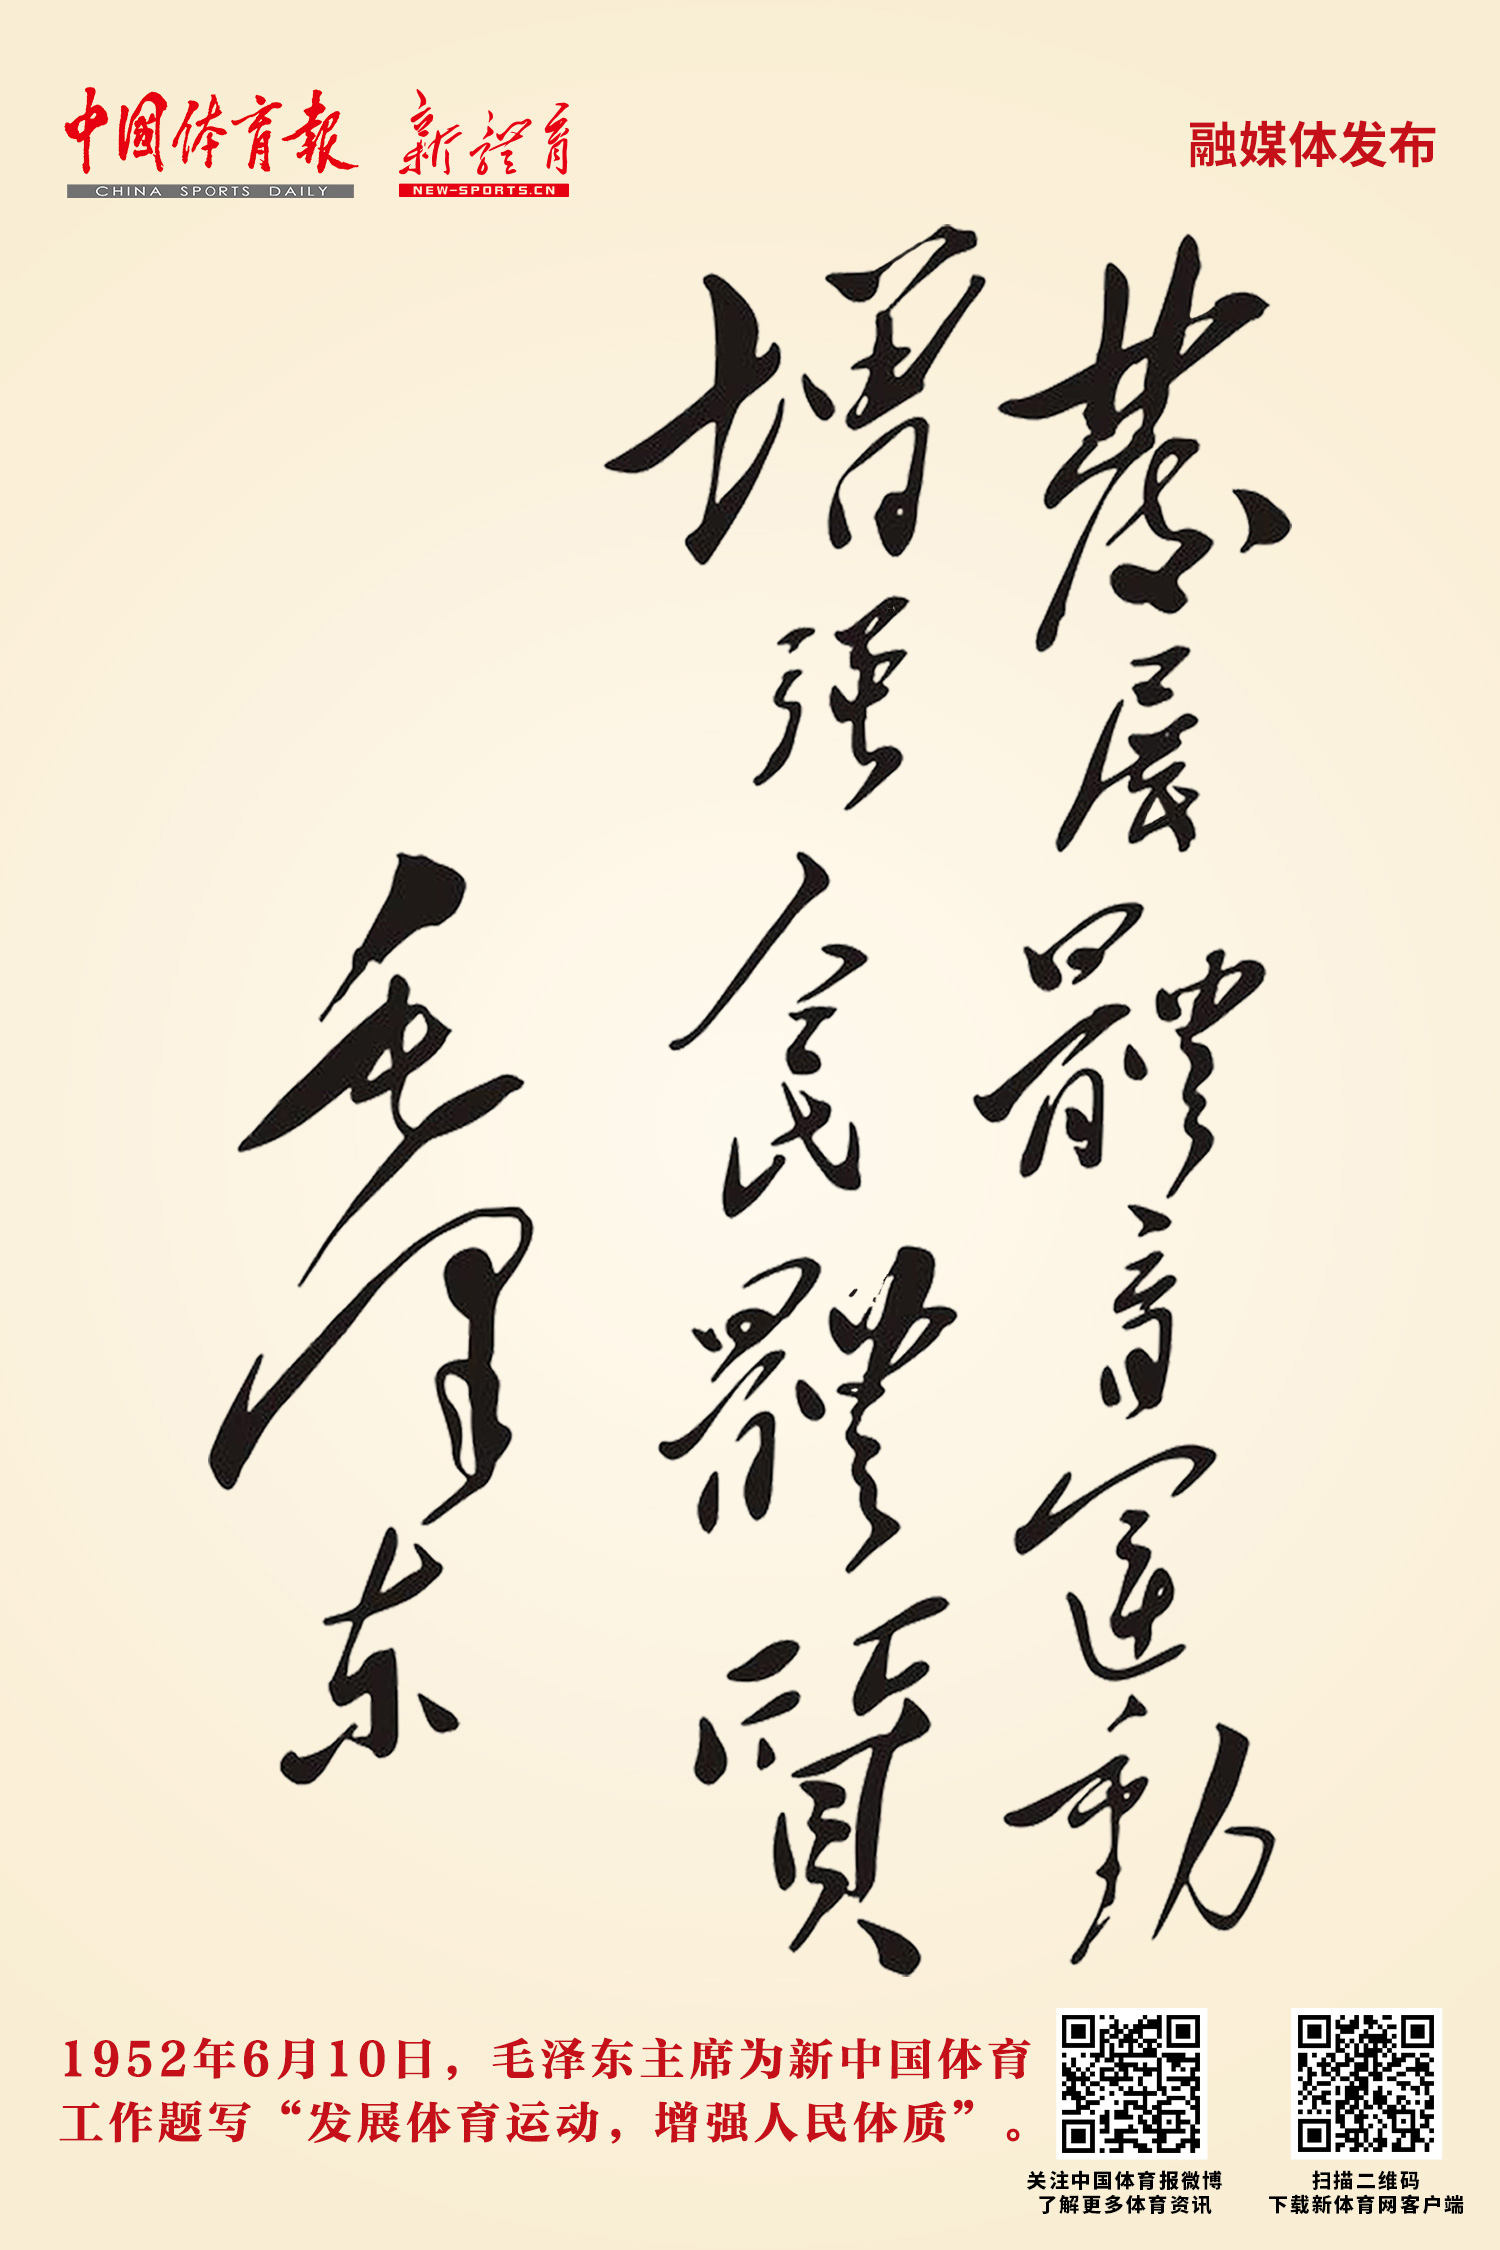 中国体育報
CHINA SPORTS DAILY
新體育
NEW-SPORTS.CN
融媒体发布
發展體育運動
增强人民體質
毛泽东
1952年6月10日，毛泽东主席为新中国体育
工作题写“发展体育运动，增强人民体质”。
关注中国体育报微博
了解更多体育资讯
扫描二维码
下载新体育网客户端